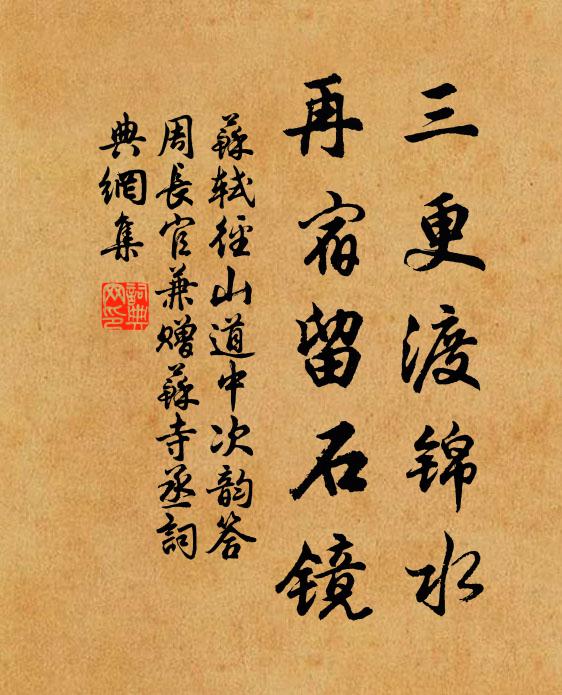 三更渡锦水
再宿留石镜
蘇軾徑山道中次韵答
周長官兼赠蘇寺丞詞
典網集
詞典
网印